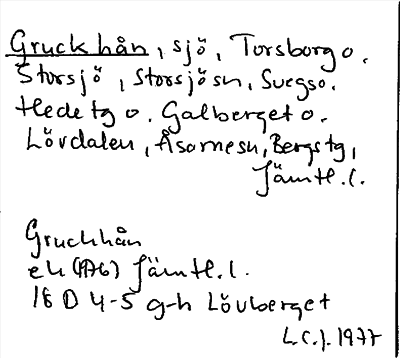 Gruckhån, sjö, Torsborg o.
Storsjö, Storsjösn, Svegs o.
Hede tg o. Galberget o.
Lövdalen, Åsarnesn, Bergs tg,
Jämtl. l.
Gruckhån
ek (1776) Jämtl. l.
18 D 4-5 g-h Lövberget
L.C.J. 1977